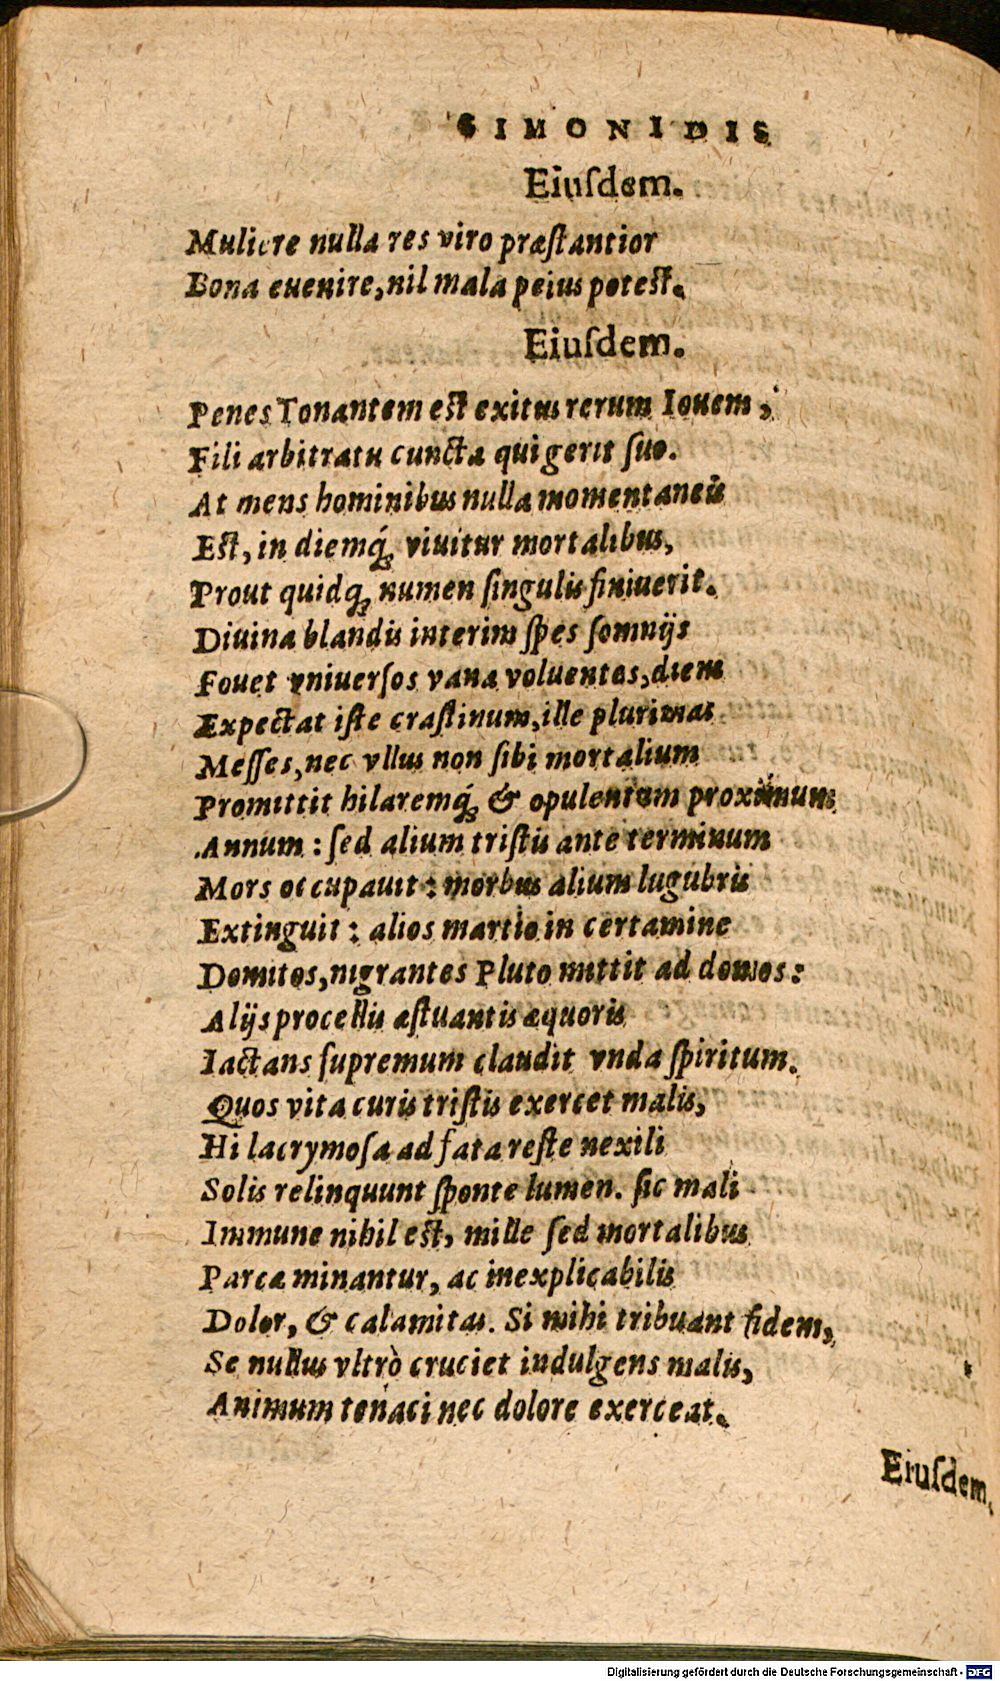 SIMONIDIS
Eiuſdem.
Muliere nulla res viro præſtantior
Bona euenire, nil mala peius poteſt.
Eiuſdem.
Penes Tonantem eſt exitus rerum Iouem,
Fili arbitratu cuncta qui gerit ſuo.
At mens hominibus nulla momentaneũ
Eſt, in diemq́; viuitur mortalibus,
Prout quidq; numen ſingulis finiuerit.
Diuina blandis interim ſpes ſomnijs
Fouet vniuerſos vana voluentes, diem
Expectat iſte craſtinum, ille plurimas
Meſſes, nec vllus non ſibi mortalium
Promittit hilaremq́; & opulentum proximum
Annum: ſed alium triſtis ante terminum
Mors occupauit: morbus alium lugubris
Extinguit: alios martio in certamine
Domitos, nigrantes Pluto mittit ad domos:
Alijs procellis æſtuantis æquoris
Iactans ſupremum claudit vnda ſpiritum.
Quos vita curis triſtis exercet malis,
Hi lacrymoſa ad fata reſte nexili
Solis relinquunt ſponte lumen. ſic mali
Immune nihil eſt, mille ſed mortalibus
Parcæ minantur, ac inexplicabilis
Dolor, & calamitas. Si mihi tribuant fidem,
Se nullus vltrò cruciet indulgens malis,
Animum tenaci nec dolore exerceat.
Eiuſdem.
Digitalisierung gefördert durch die Deutsche Forschungsgemeinschaft - DFG